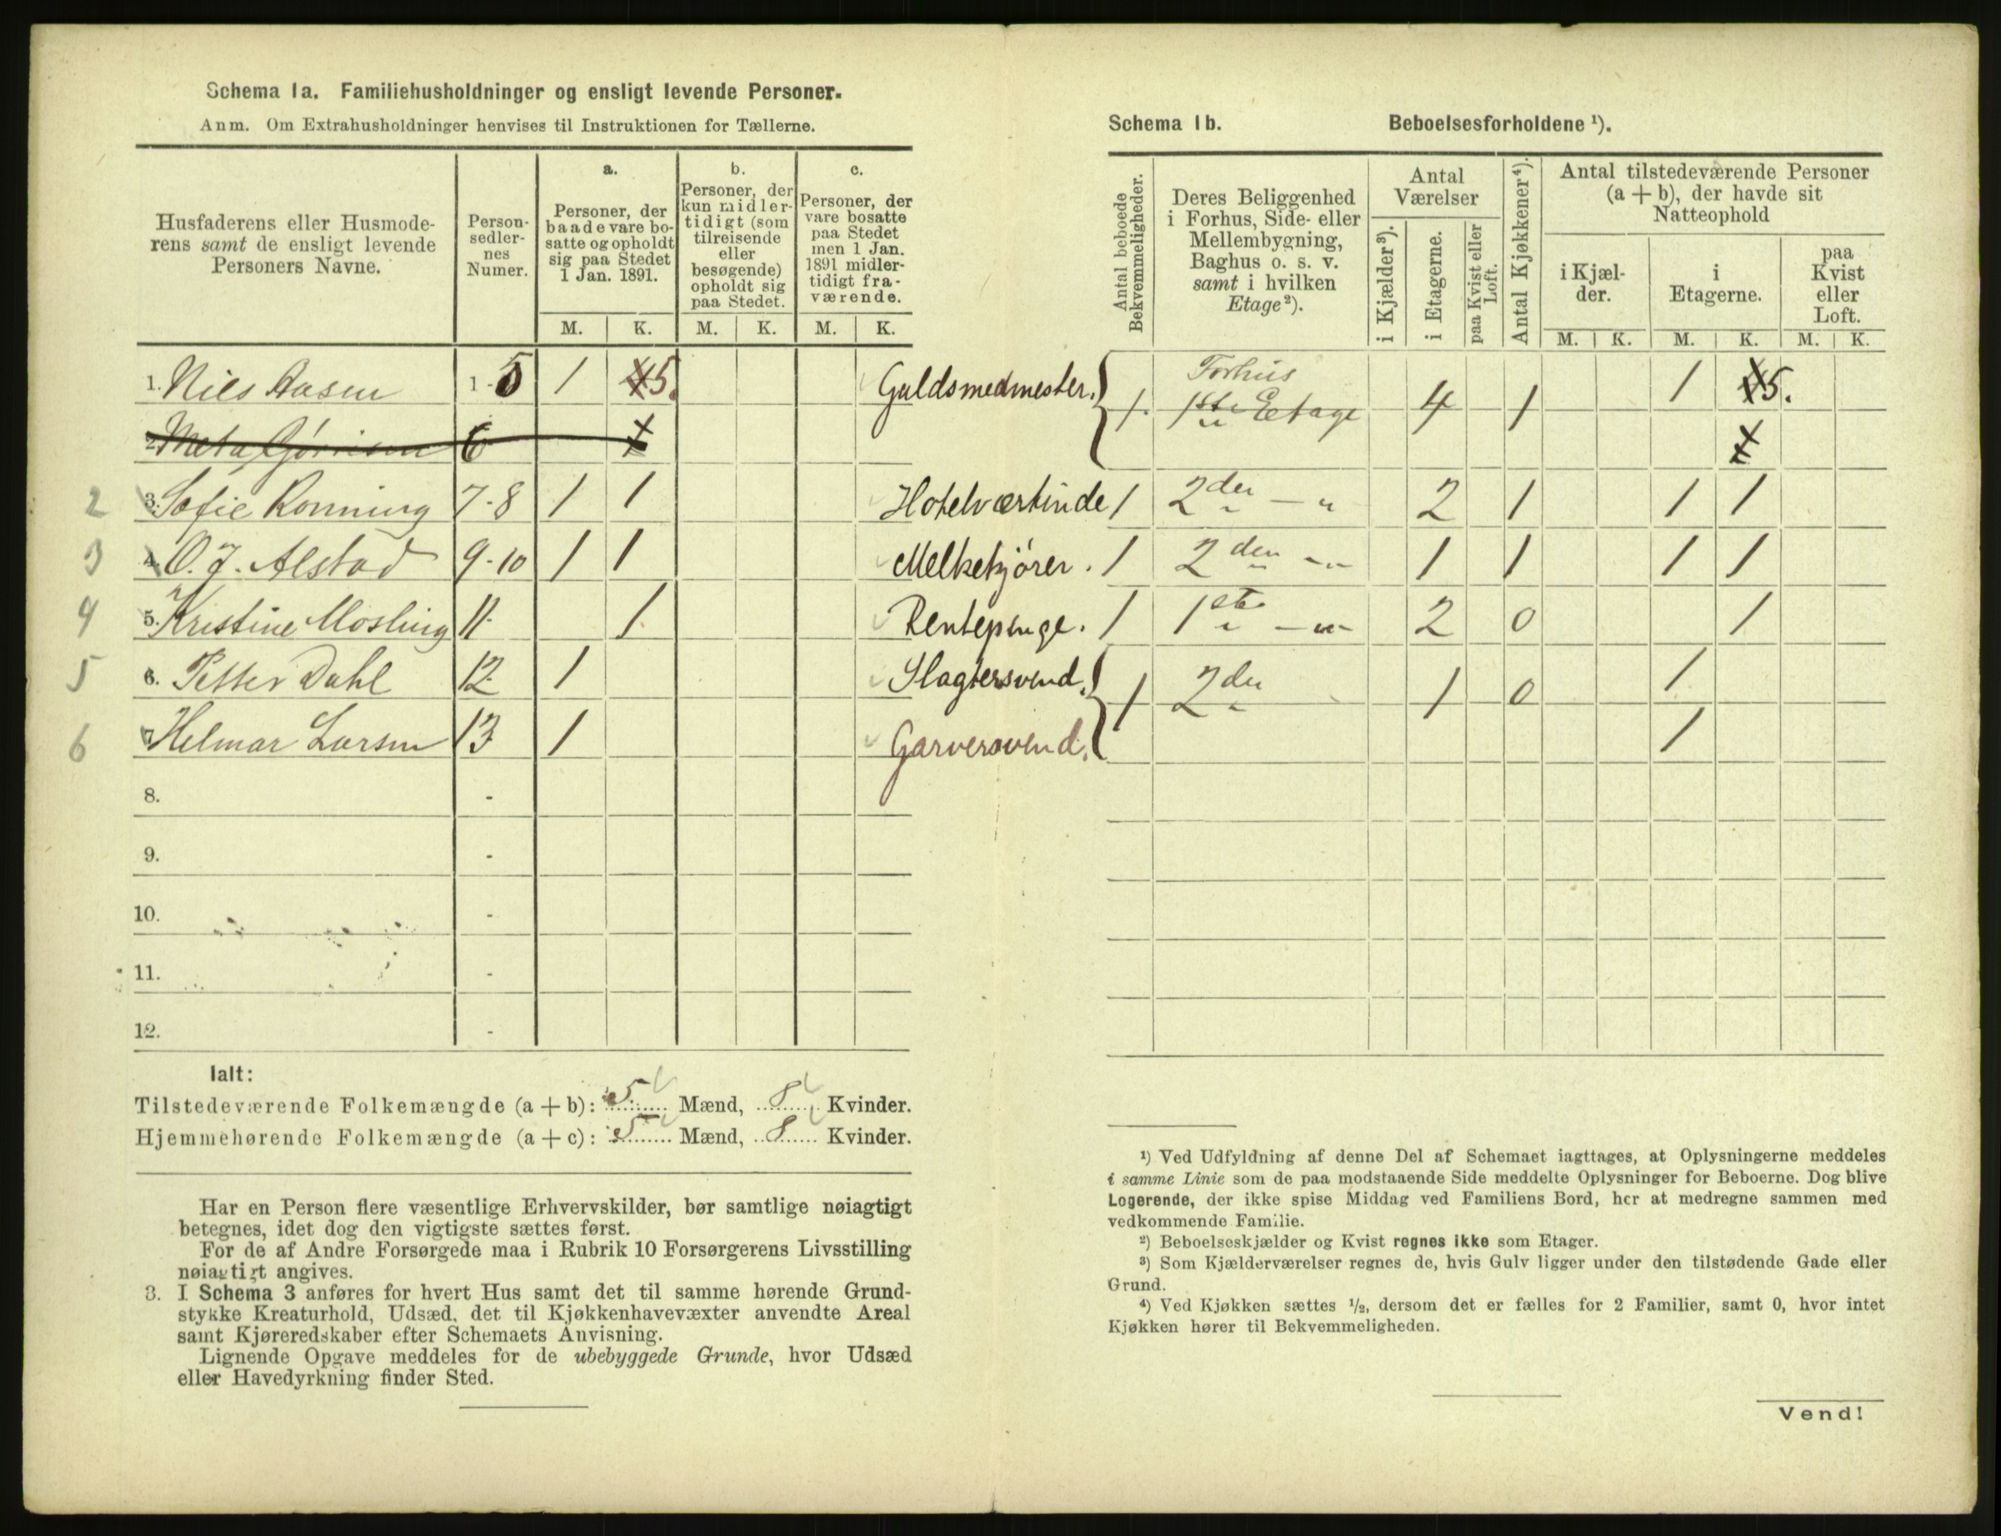 Schema 1a. Familiehusholdninger og ensligt levende Personer.
Anm. Om Extrahusholdninger henvises til Instruktionen for Tællerne.
Husfaderens eller Husmoderens samt de ensligt levende Personers Navne.
Personsedlernes Numer.
a. Personer, der baade vare bosatte og opholdt sig paa Stedet 1 Jan. 1891.
b. Personer, der kun midlertidigt (som tilreisende eller besøgende) opholdt sig paa Stedet.
c. Personer, der vare bosatte paa Stedet men 1 Jan. 1891 midlertidigt fraværende.
M. K. M. K. M. K.
1. Nils Aasen 1-5 1 5. Guldsmedmester.
2. Meta Gørrisen 6
2 3. Sofie Rønning 7-8 1 1 Hotelværtinde
3 4. O. J. Alstad 9-10 1 1 Melkekjører.
4 5. Kristine Mosling 11 1 Rentepenge.
5 6. Petter Dahl 12 1 Slagtersvend.
6 7. Helmar Larsen 13 1 Garversvend.
8. -
9. -
10. -
11. -
12. -
Ialt:
Tilstedeværende Folkemængde (a + b): 5 Mænd, 8 Kvinder.
Hjemmehørende Folkemængde (a + c): 5 Mænd, 8 Kvinder.
Har en Person flere væsentlige Erhvervskilder, bør samtlige nøiagtigt
betegnes, idet dog den vigtigste sættes først.
For de af Andre Forsørgede maa i Rubrik 10 Forsørgerens Livsstilling
nøiagtigt angives.
3. I Schema 3 anføres for hvert Hus samt det til samme hørende Grund-
stykke Kreaturhold, Udsæd, det til Kjøkkenhavevæxter anvendte Areal
samt Kjøreredskaber efter Schemaets Anvisning.
Lignende Opgave meddeles for de ubebyggede Grunde, hvor Udsæd
eller Havedyrkning finder Sted.
Schema 1b. Beboelsesforholdene ¹).
Antal beboede Bekvemmeligheder.
Deres Beliggenhed i Forhus, Side- eller Mellembygning, Baghus o. s. v. samt i hvilken Etage²).
Antal Værelser
i Kjælder³).
i Etagerne.
paa Kvist eller Loft.
Antal Kjøkkener⁴).
Antal tilstedeværende Personer (a + b), der havde sit Natteophold
i Kjælder.
i Etagerne.
paa Kvist eller Loft.
M. K. M. K. M. K.
1. Forhus 1ste Etage 4 1 1 5.
1 2den — „ 2 1 1 1
1 2den — „ 1 1 1 1
1 1ste — „ 2 0 1
1 2den 1 0 1
1
¹) Ved Udfyldning af denne Del af Schemaet iagttages, at Oplysningerne meddeles
i samme Linie som de paa modstaaende Side meddelte Oplysninger for Beboerne. Dog blive
Logerende, der ikke spise Middag ved Familiens Bord, her at medregne sammen med
vedkommende Familie.
²) Beboelseskjælder og Kvist regnes ikke som Etager.
³) Som Kjælderværelser regnes de, hvis Gulv ligger under den tilstødende Gade eller
Grund.
⁴) Ved Kjøkken sættes ½, dersom det er fælles for 2 Familier, samt 0, hvor intet
Kjøkken hører til Bekvemmeligheden.
Vend!